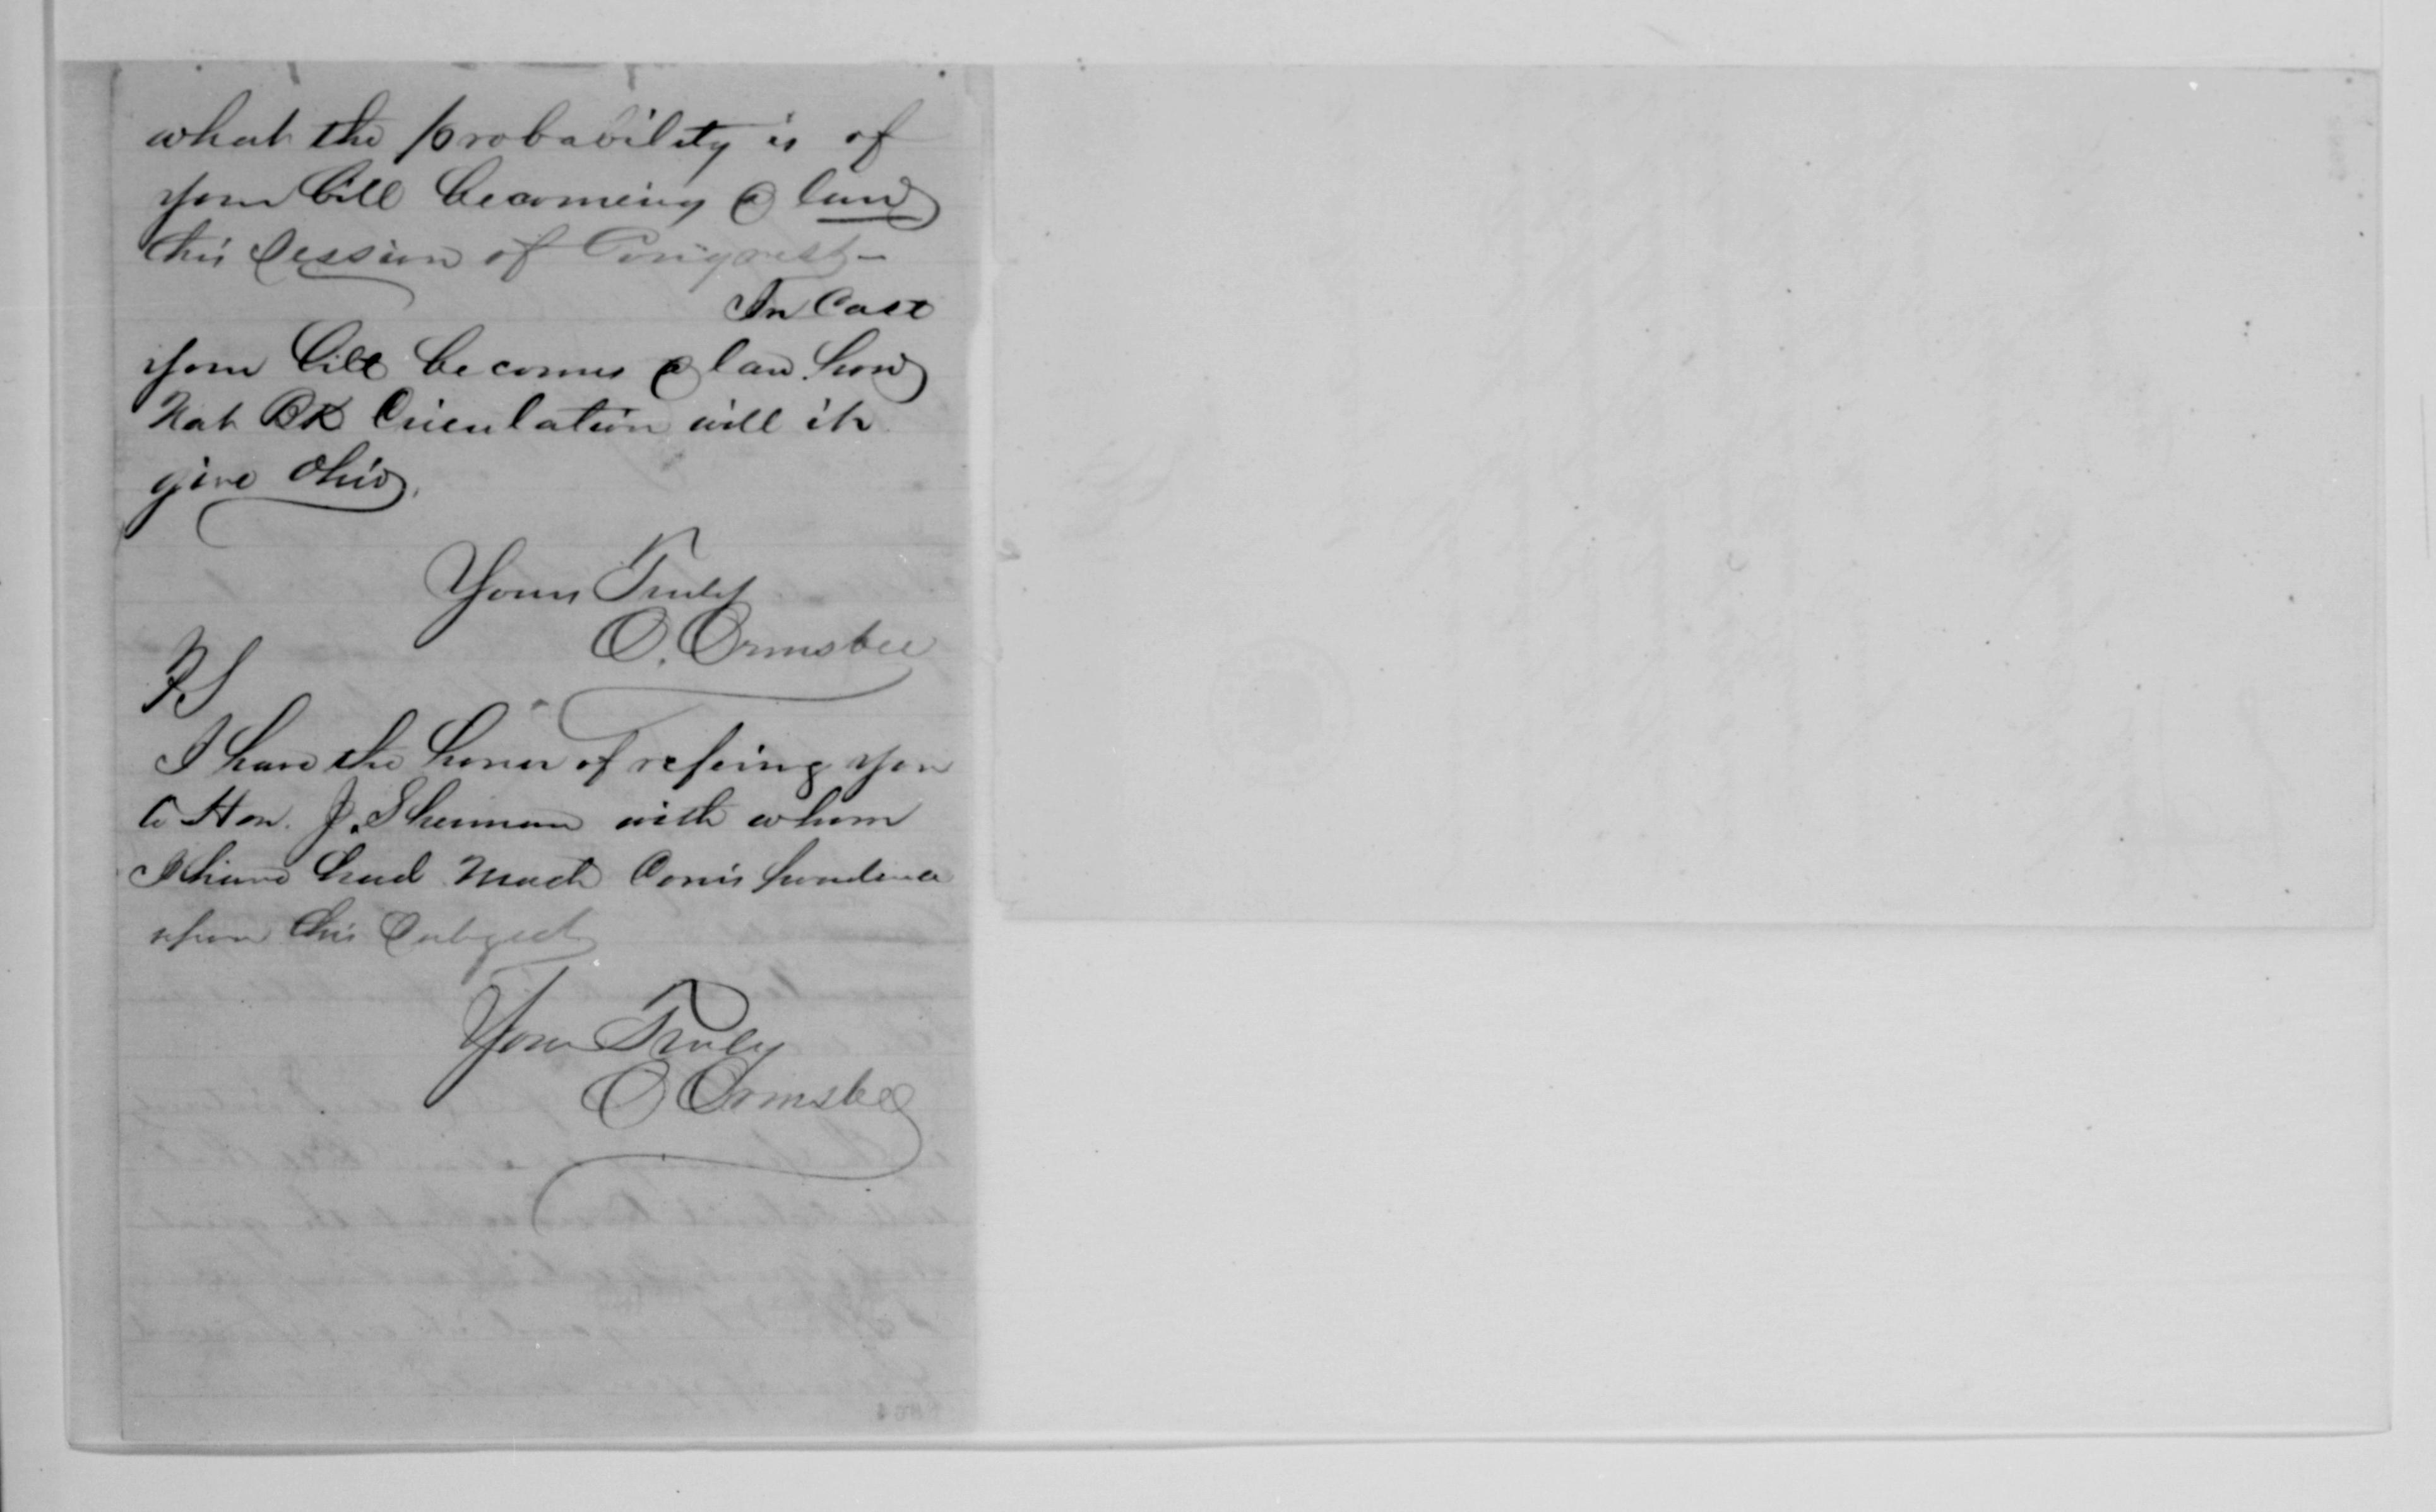 what the probability is of
your bill becoming a law
this Session of Congress—
In Case
your bill becomes a law how
Nat BK Circulation will it
give Ohio,
Yours Truly
O. Ormsbee
PS
I have the honor of refering you
to Hon. J. Sherman with whom
I have had much Corrispondence
upon this Subject
Your Truly
O Ormsbee